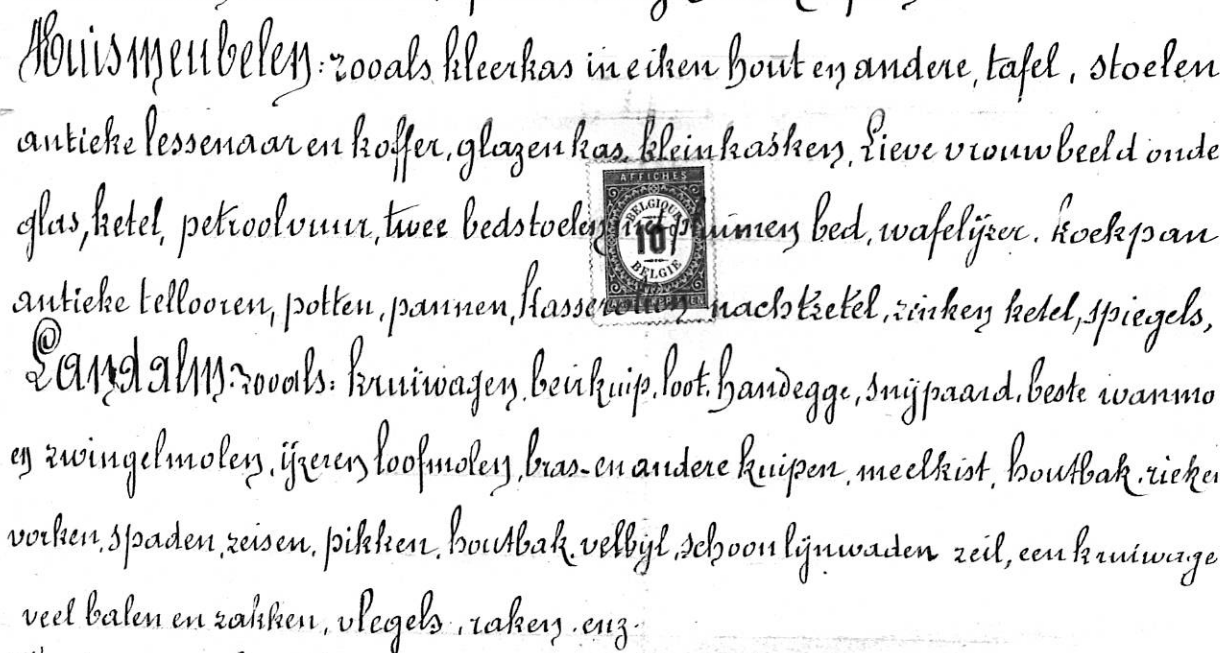 Huismeubelen: zooals kleerkas in eiken hout en andere, tafel, stoelen
antieke lessenaar en koffer, glazen kas, klein kasken, Lieve vrouwbeeld onde
glas, ketel, petroolvuur, twee bedstoelen met pluimen bed, wafelijzer. koekpan
AFFICHES
BELGIQUE
10
BELGIË
antieke tellooren, potten, pannen, kasserollen nachtketel, zinken ketel, spiegels,
Landalm: zooals: kruiwagen, beirkuip, loot. handegge, snijpaard, beste wanmo
en zwingelmolen, ijzeren loofmolen, bras- en andere kuipen, meelkist, houtbak, rieke
vorken, spaden, zeisen, pikken, houtbak, velbijl, schoon lijnwaden zeil, een kruiwage
veel balen en zakken, vlegels, raken, enz.